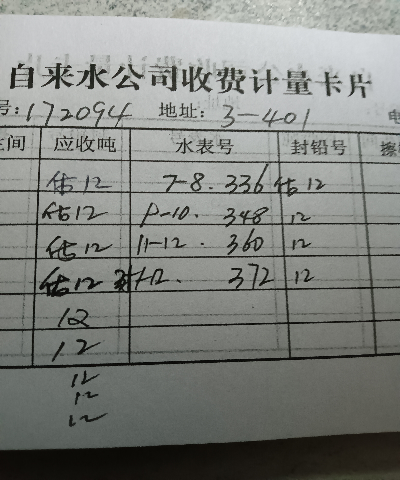 自来水公司收费计量卡片
号:172094 地址:3-401 电
间 应收吨 水表号 封铅号 擦
估12 7-8. 336 估12
估12 9-10. 348 12
估12 11-12. 360 12
估12 1-2. 372 12
12
12
12
12
12